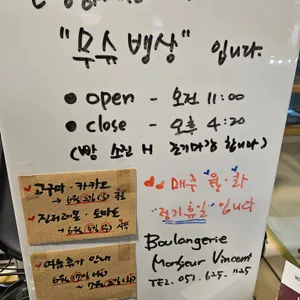 "무슈뱅상" 입니다.
• open - 오전 11:00
• close - 오후 4:20
(빵 소진시 조기마감 합니다)
고구마·카카오
진저레몬·토마토
여름휴가 안내
매주 월·화
"정기휴일" 입니다
Boulangerie
Monsieur Vincent
TEL. 051. 625. 1125